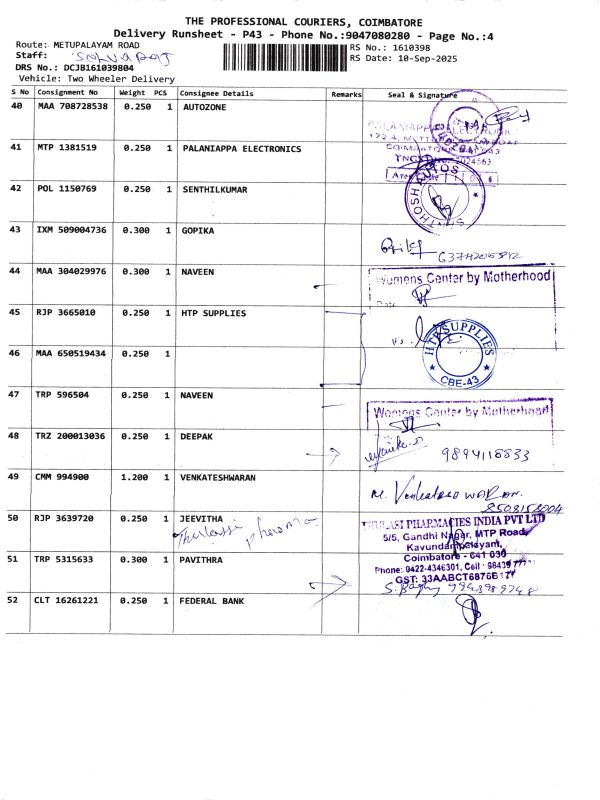 THE PROFESSIONAL COURIERS, COIMBATORE
Delivery Runsheet - P43 - Phone No.:9047080280 - Page No.:4
Route: METUPALAYAM ROAD RS No.: 1610398
Staff: SELVARAJ RS Date: 10-Sep-2025
DRS No.: DCJB161039804
Vehicle: Two Wheeler Delivery
S No Consignment No Weight PCS Consignee Details Remarks Seal & Signature
40 MAA 708728538 0.250 1 AUTOZONE
PALANIAPPA ELECTRONIC
41 MTP 1381519 0.250 1 PALANIAPPA ELECTRONICS
42 POL 1150769 0.250 1 SENTHILKUMAR
SANTHOSH AUTOS
43 IXM 509004736 0.300 1 GOPIKA
44 MAA 304029976 0.300 1 NAVEEN
Womens Center by Motherhood
45 RJP 3665010 0.250 1 HTP SUPPLIES
HTP SUPPLIES
CBE-43
46 MAA 650519434 0.250 1
47 TRP 596504 0.250 1 NAVEEN
Womens Center by Motherhood
48 TRZ 200013036 0.250 1 DEEPAK
9894116833
49 CMM 994900 1.200 1 VENKATESHWARAN
50 RJP 3639720 0.250 1 JEEVITHA
Thulassi pharma
PHARMACIES INDIA PVT LTD
5/5, Gandhi Nagar, MTP Road,
Kavundampalayam,
Coimbatore - 641 030
51 TRP 5315633 0.300 1 PAVITHRA
Phone: 0422-4346301, Cell : 98439
GST: 33AABCT6876B1
52 CLT 16261221 0.250 1 FEDERAL BANK